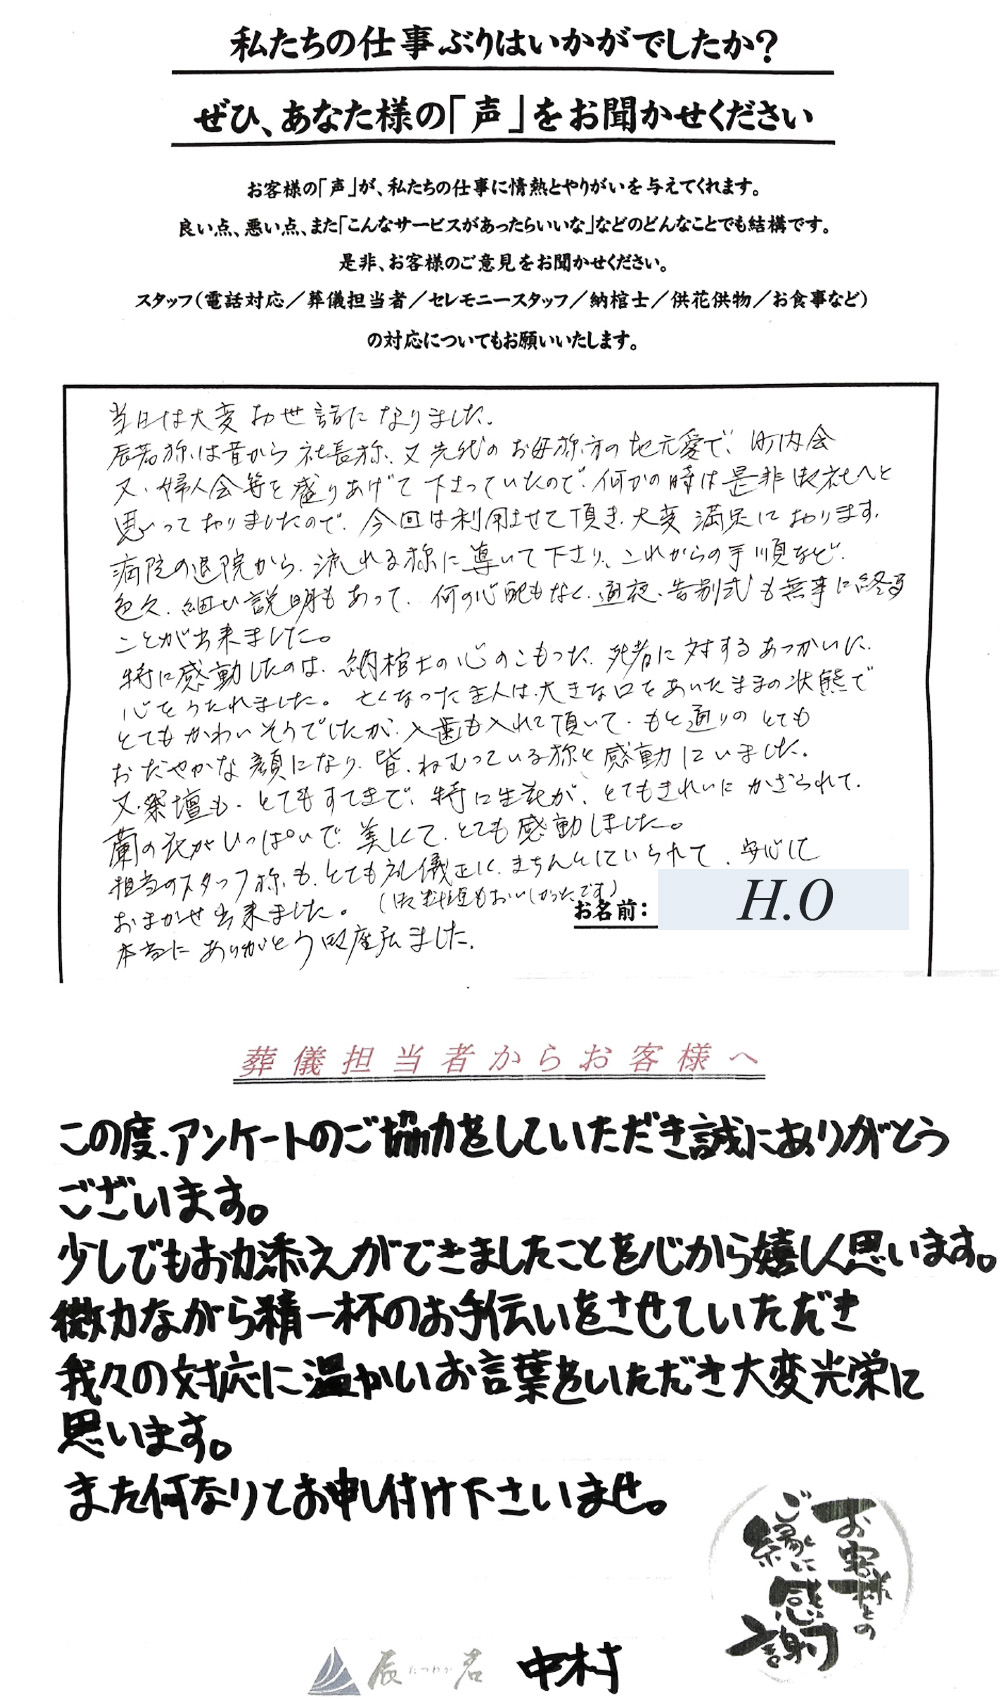 私たちの仕事ぶりはいかがでしたか?
ぜひ、あなた様の「声」をお聞かせください
お客様の「声」が、私たちの仕事に情熱とやりがいを与えてくれます。
良い点、悪い点、また「こんなサービスがあったらいいな」などのどんなことでも結構です。
是非、お客様のご意見をお聞かせください。
スタッフ(電話対応/葬儀担当者/セレモニースタッフ/納棺士/供花供物/お食事など)
の対応についてもお願いいたします。
当日は大変お世話になりました。
辰若様は昔から社長様、又先代のお母様方の地元愛で、町内会
又、婦人会等を盛りあげて下さっていたので、何かの時は是非御社へと
思っておりましたので、今回は利用させて頂き、大変満足しております。
病院の退院から、流れる様に導いて下さり、これからの手順など、
色々、細い説明もあって、何の心配もなく、通夜、告別式も無事に終る
ことが出来ました。
特に感動したのは、納棺士の心のこもった、死者に対するあつかいに、
心をうたれました。亡くなった主人は、大きな口をあいたままの状態で
とてもかわいそうでしたが、入歯も入れて頂いて、もと通りのとても
おだやかな顔になり、皆、ねむっている様と感動していました。
又、祭壇も、とてもすてきで、特に生花が、とてもきれいにかざられて、
蘭の花がいっぱいで、美しくて、とても感動しました。
担当のスタッフ様も、とても礼儀正しく、きちんとしていられて、安心して
おまかせ出来ました。(御料理もおいしかったです)
お名前: H.O
本当にありがとう御座居ました。
葬儀担当者からお客様へ
この度、アンケートのご協力をしていただき誠にありがとう
ございます。
少しでもお力添えができましたことを心から嬉しく思います。
微力ながら精一杯のお手伝いをさせていただき
我々の対応に温かいお言葉をいただき大変光栄に
思います。
また何なりとお申し付け下さいませ。
お客様との
ご縁に
感謝
辰若 たつわか 中村